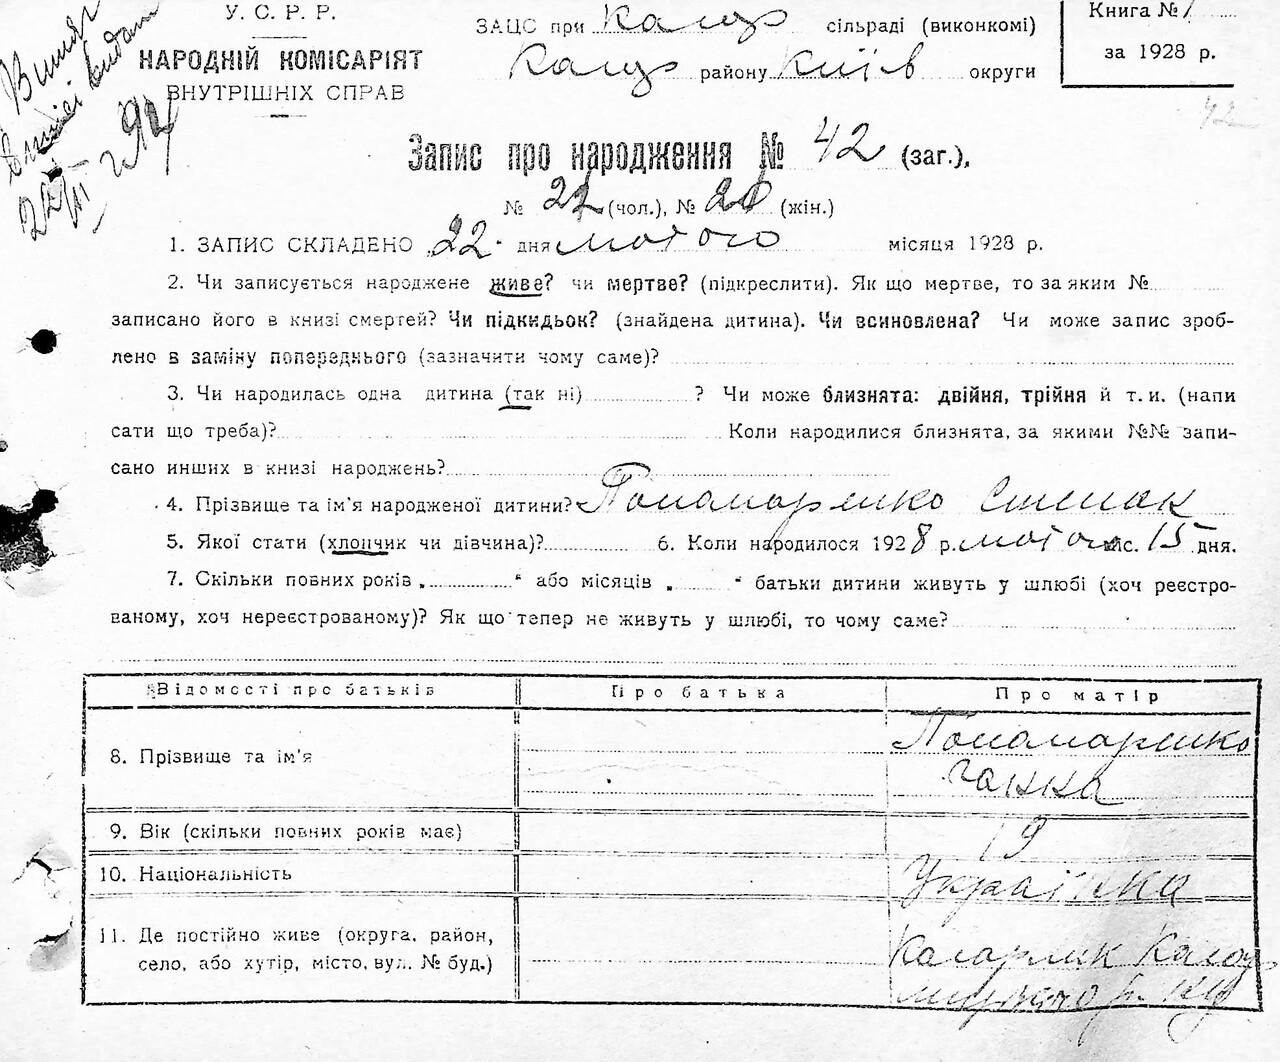 У.С.Р.Р.
НАРОДНІЙ КОМІСАРІЯТ
ВНУТРІШНІХ СПРАВ
ЗАЦС при Кагар сільраді (виконкомі)
Кагар району Київ округи
Книга № 1
за 1928 р.
42
Запис про народження № 42 (заг.),
№ 22 (чол.), № 20 (жін.)
1. ЗАПИС СКЛАДЕНО 22 дня лютого місяця 1928 р.
2. Чи записується народжене живе? чи мертве? (підкреслити). Як що мертве, то за яким №
записано його в книзі смертей? Чи підкидьок? (знайдена дитина). Чи всиновлена? Чи може запис зроб-
лено в заміну попереднього (зазначити чому саме)?
3. Чи народилась одна дитина (так ні) ? Чи може близнята: двійня, трійня й т.и. (напи
сати що треба)? Коли народилися близнята, за якими №№ запи-
сано инших в книзі народжень?
4. Прізвище та ім'я народженої дитини? Пономаренко Степан
5. Якої стати (хлопчик чи дівчина)? 6. Коли народилося 1928 р. лютого міс. 15 дня.
7. Скільки повних років „ “ або місяців „ “ батьки дитини живуть у шлюбі (хоч реєстро-
ваному, хоч нереєстрованому)? Як що тепер не живуть у шлюбі, то чому саме?
Відомості про батьків Про батька Про матір
8. Прізвище та ім'я Пономаренко
Ганна
9. Вік (скільки повних років має) 19
10. Національність Українка
11. Де постійно живе (округа, район,
село, або хутір, місто, вул. № буд.) Кагарлик Кагар